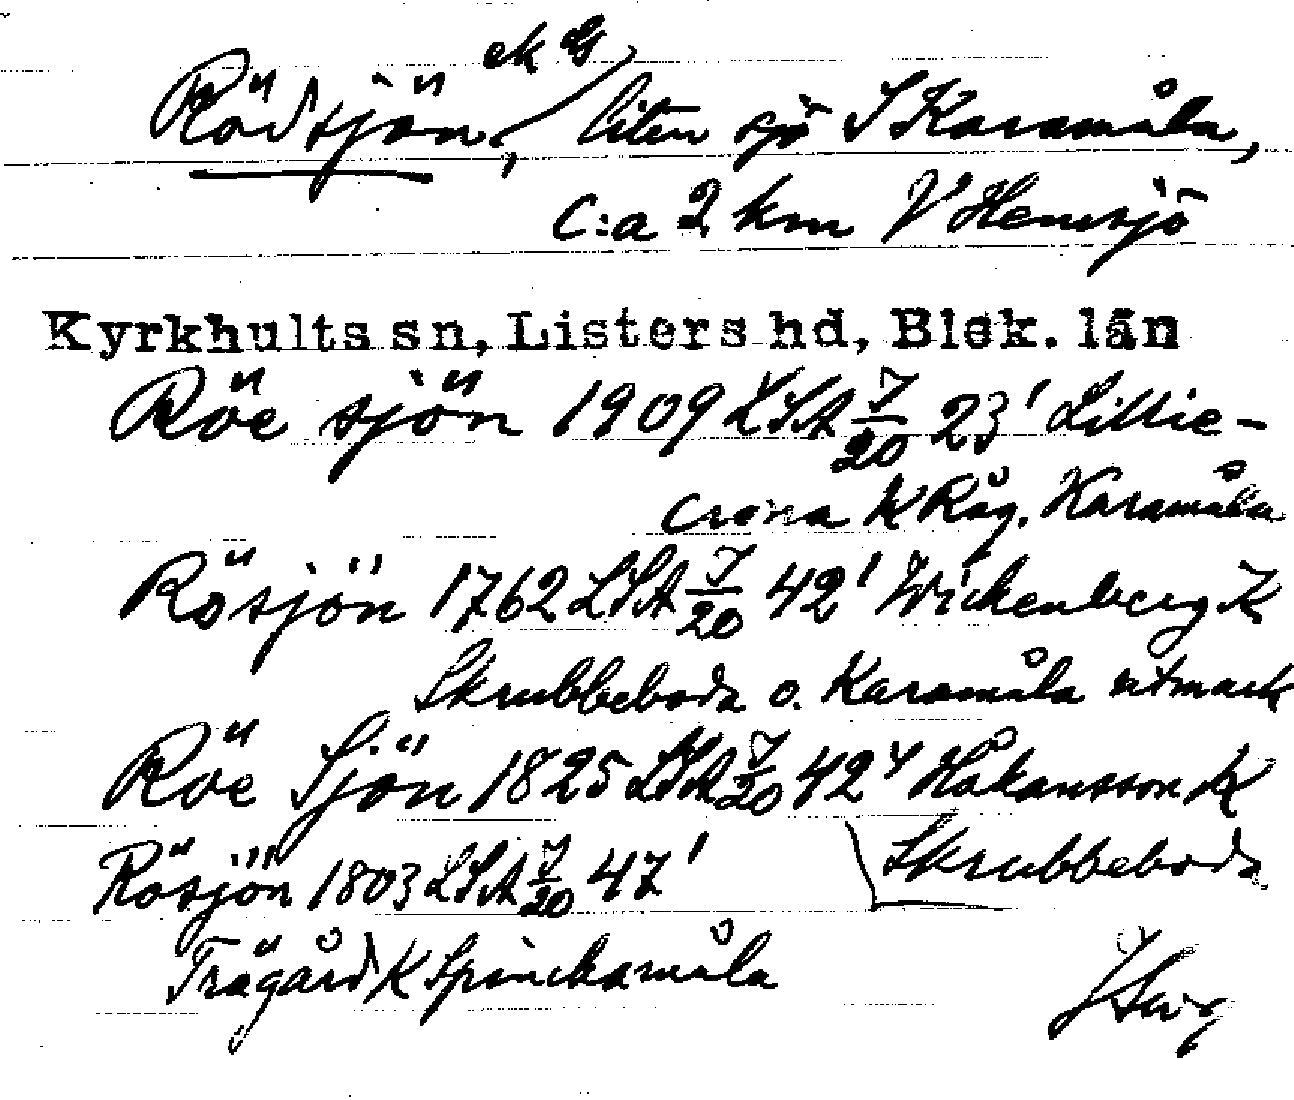 Rödsjön, ek G liten sjö S Karamåla,
c:a 2 km V Hemsjö
Kyrkhults sn, Listers hd, Blek. län
Röe sjön 1909 LSA 7/20 23' Lillie-
crona K Råg. Karamåla
Rösjön 1762 LSA 7/20 42' Wickenberg K
Skrubbeboda o. Karamåla utmark
Röe Sjön 1825 LSA 7/20 42 Håkansson K
Skrubbeboda
Rösjön 1803 LSA 7/20 47'
Trägård K Spinckamåla